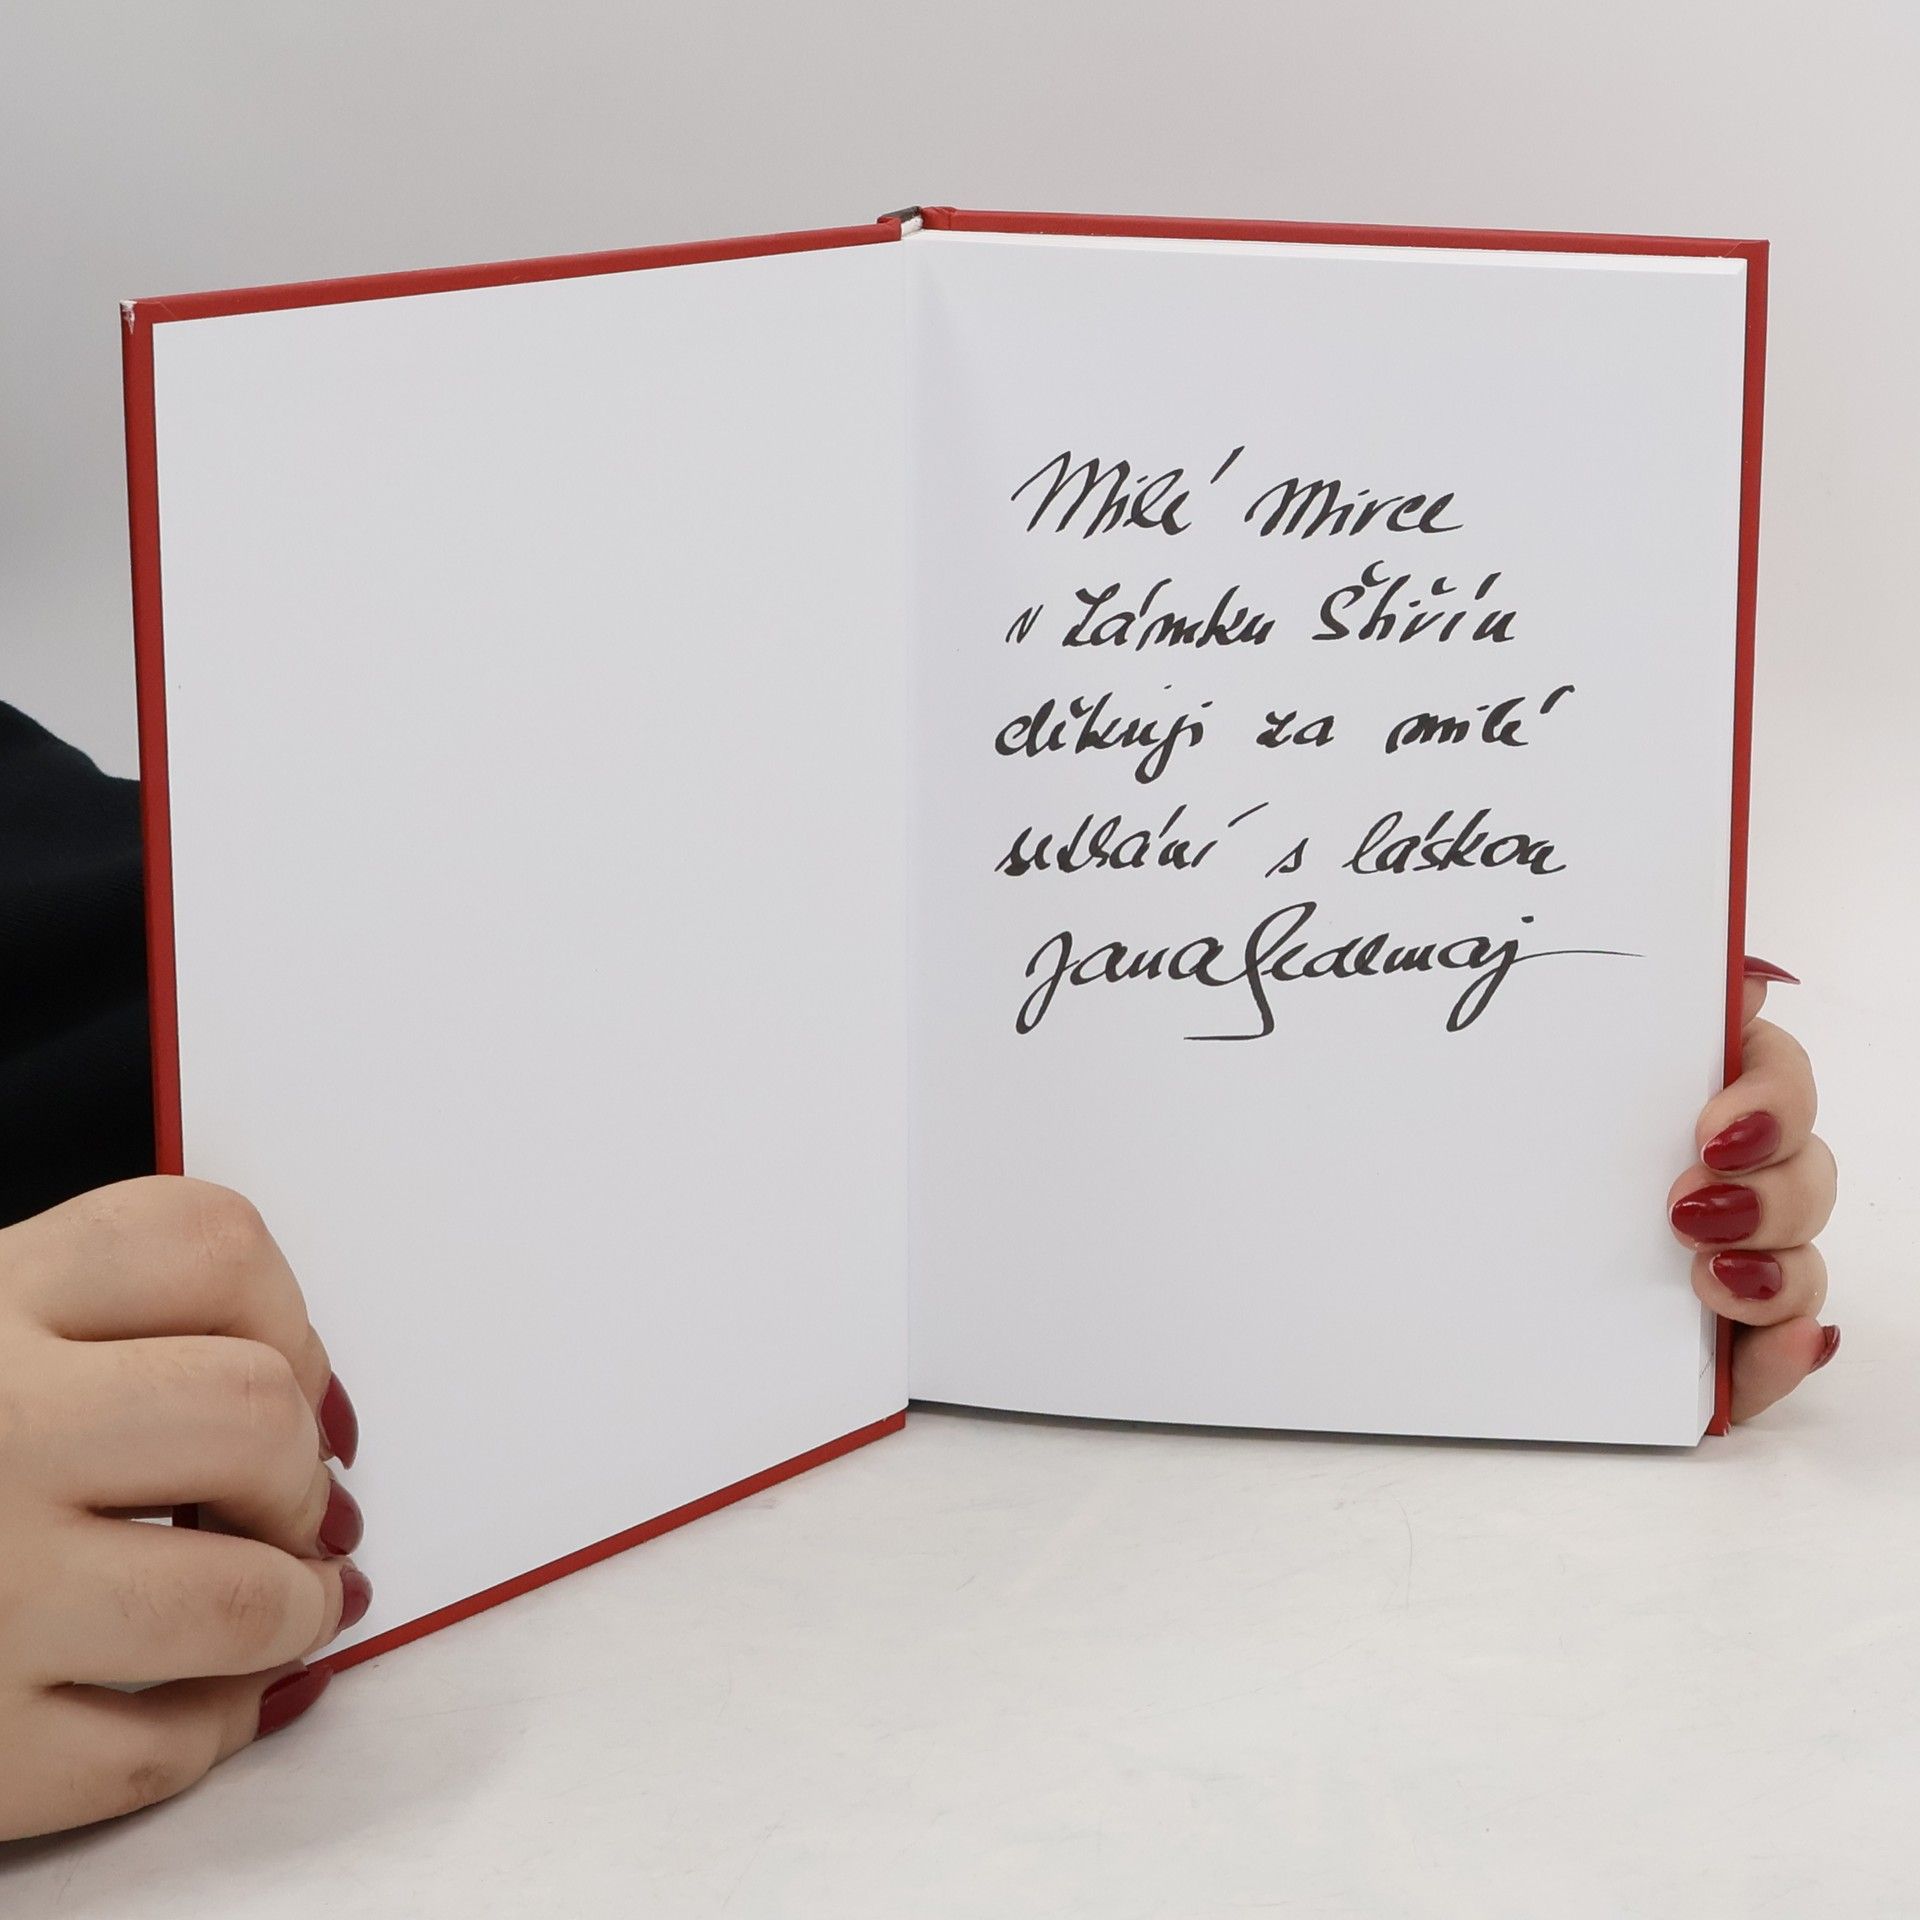 Milé Mirce
v Zámku Štiřín
děkuji za milé
setkání s láskou
Jana